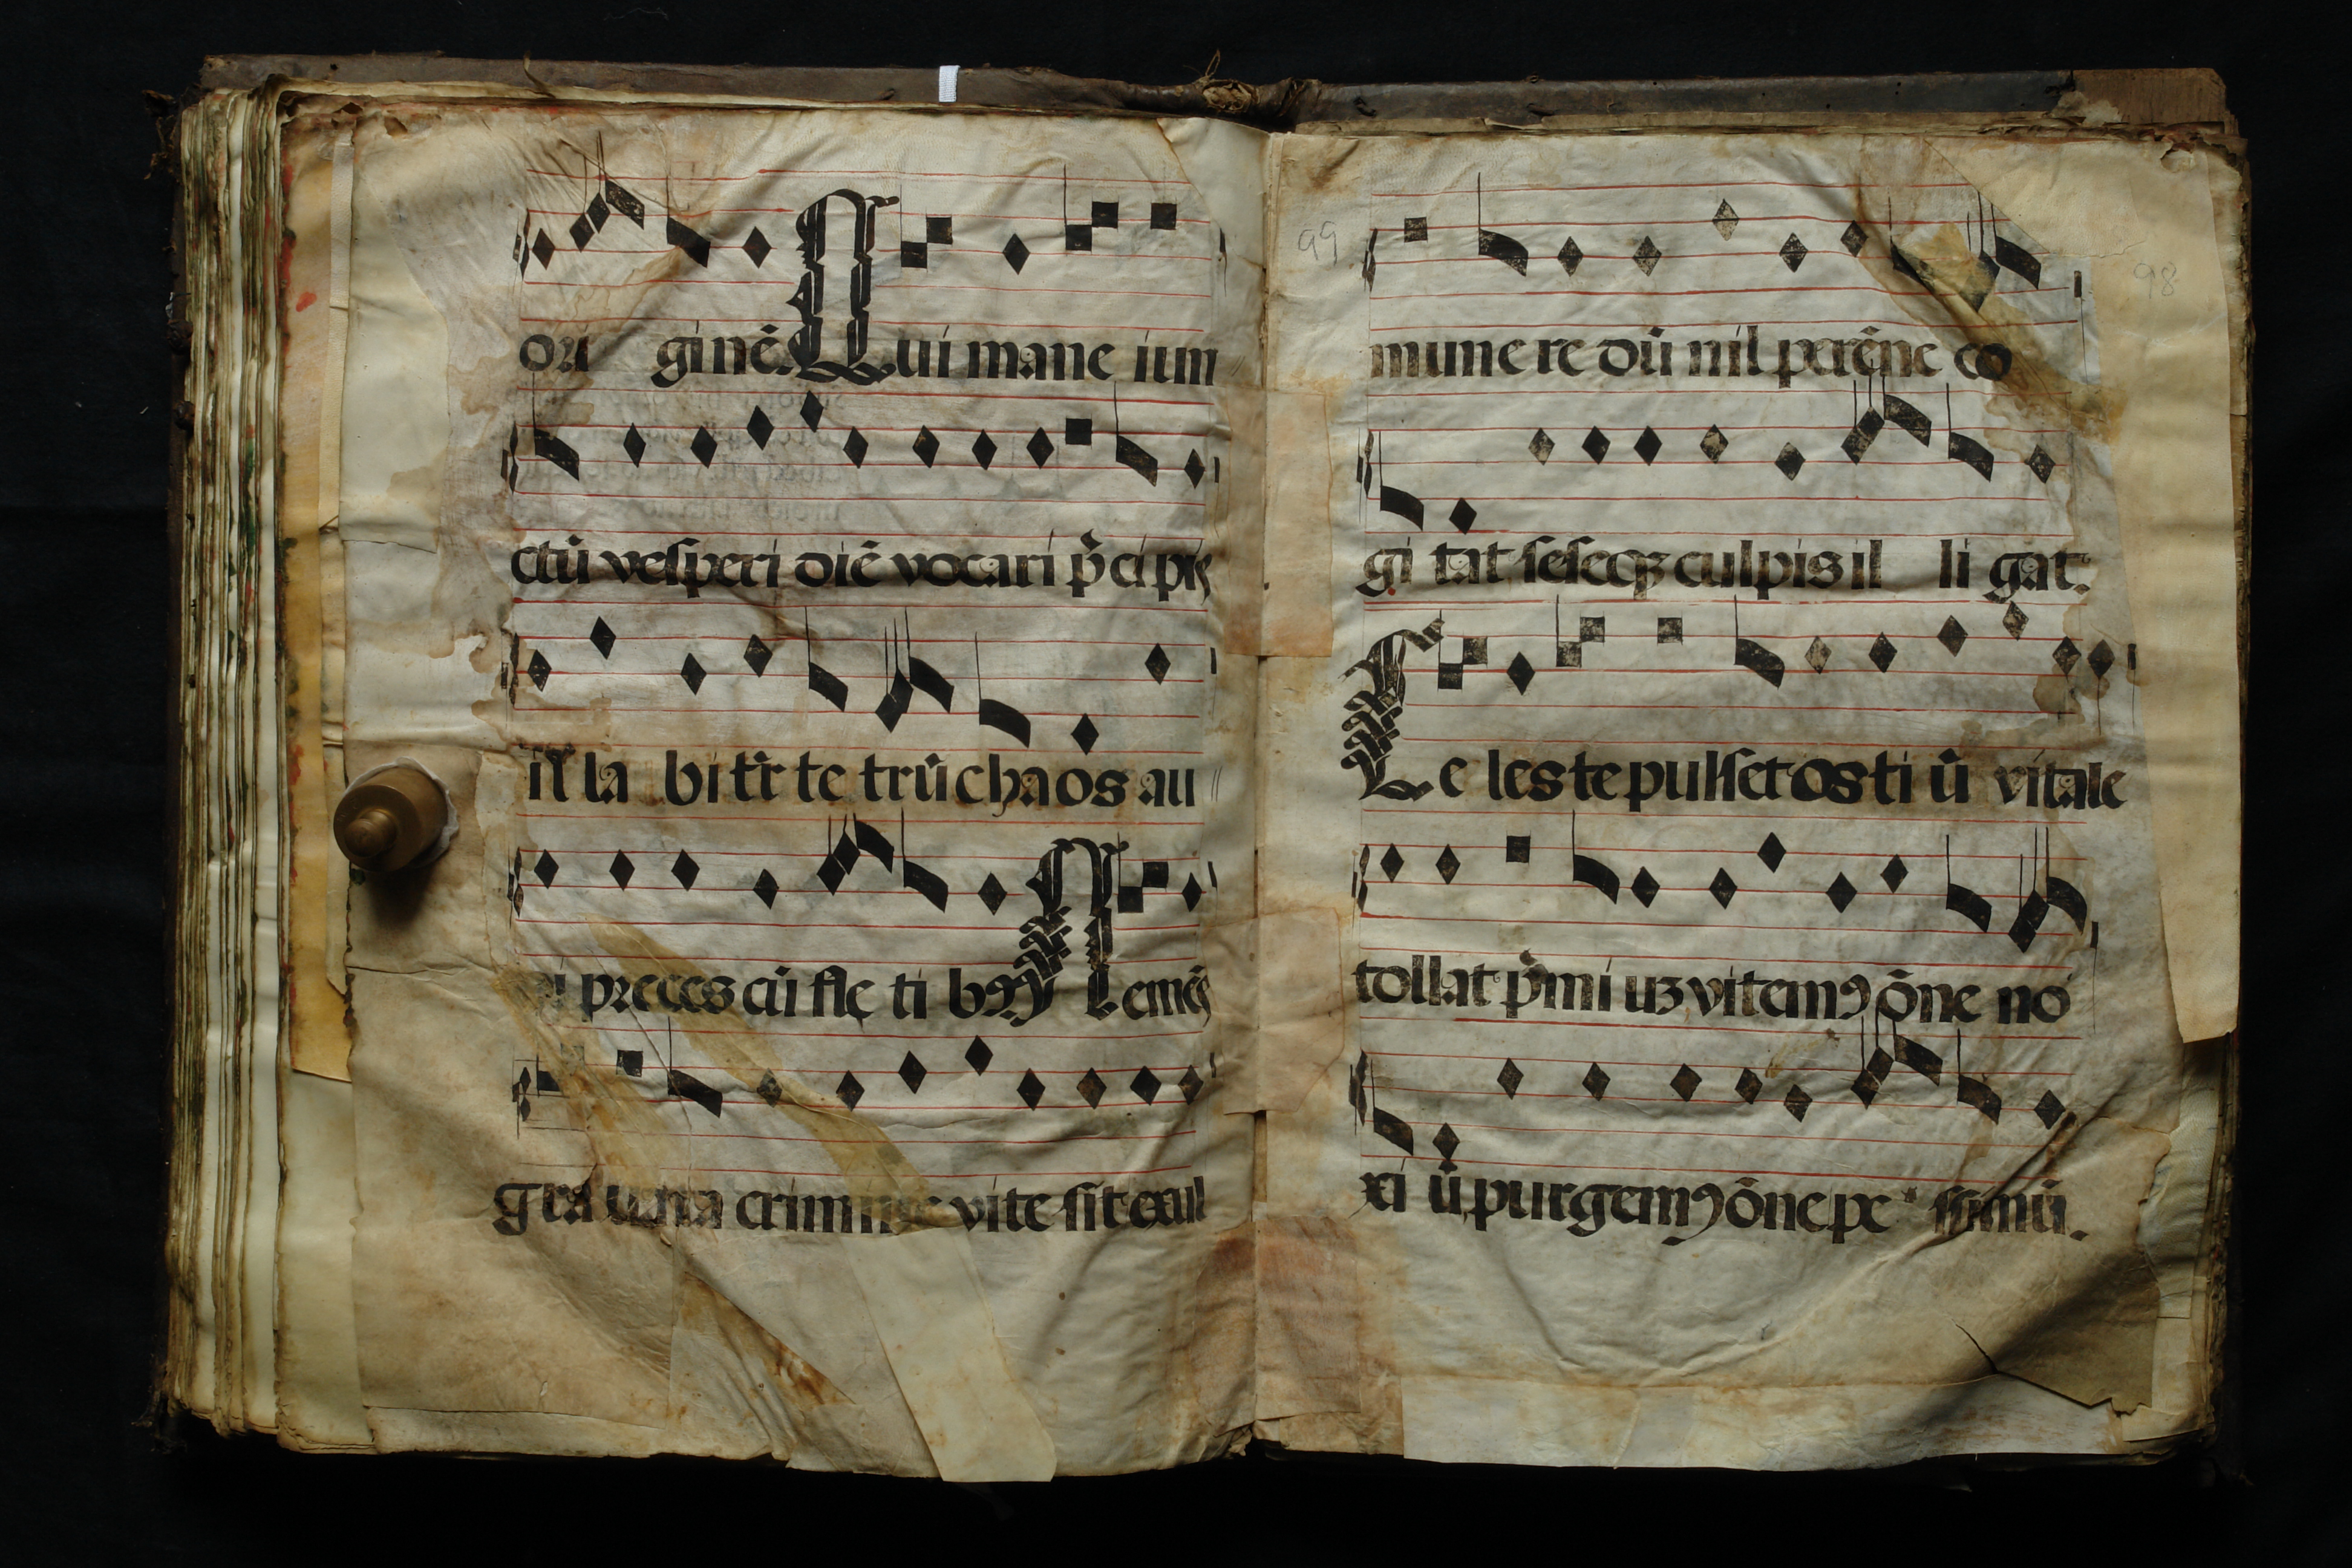 ori ginē. Qui mane iun
ctū vesperi diē vocari p̄cipis
illa bit̄ te trū chaos au
di preces cū fle ti bꝰ Ne mēs
gra uata crimine vite sit exul
99
98
munere dū nil perēne co
gi tat seseqꝫ culpis il li gat.
Ce leste pulset osti ū vitale
tollat p̄miuꝫ vitemꝰ ōne no
xi ū purgemꝰ ōne pe ssimū.